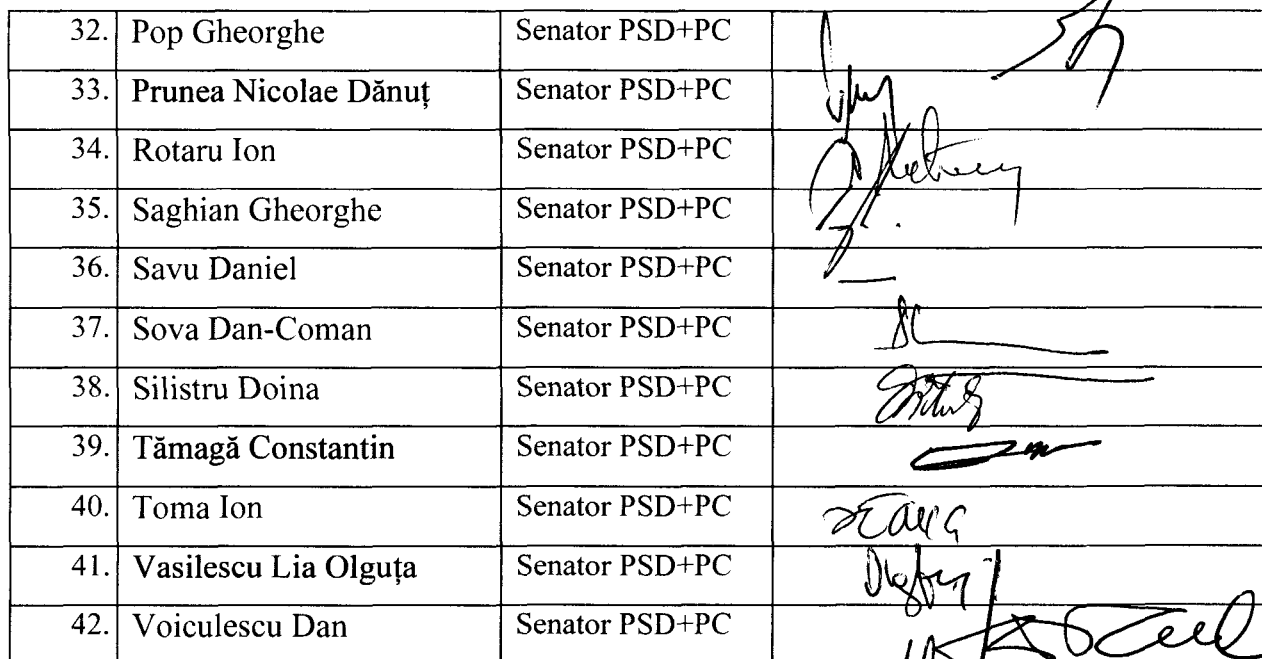 32. Pop Gheorghe Senator PSD+PC
33. Prunea Nicolae Dănuț Senator PSD+PC
34. Rotaru Ion Senator PSD+PC
35. Saghian Gheorghe Senator PSD+PC
36. Savu Daniel Senator PSD+PC
37. Sova Dan-Coman Senator PSD+PC
38. Silistru Doina Senator PSD+PC
39. Tămagă Constantin Senator PSD+PC
40. Toma Ion Senator PSD+PC
41. Vasilescu Lia Olguța Senator PSD+PC
42. Voiculescu Dan Senator PSD+PC